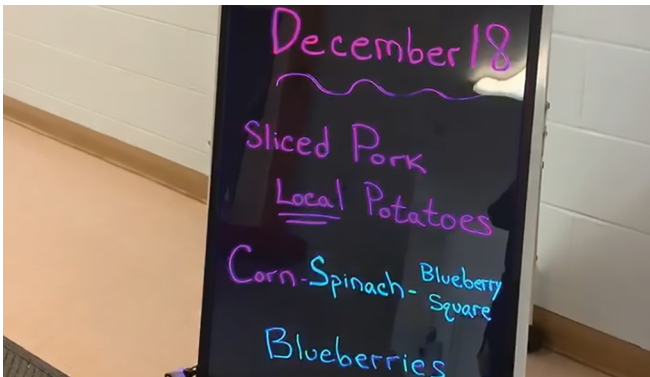 December 18
Sliced Pork
Local Potatoes
Corn - Spinach - Blueberry
Square
Blueberries